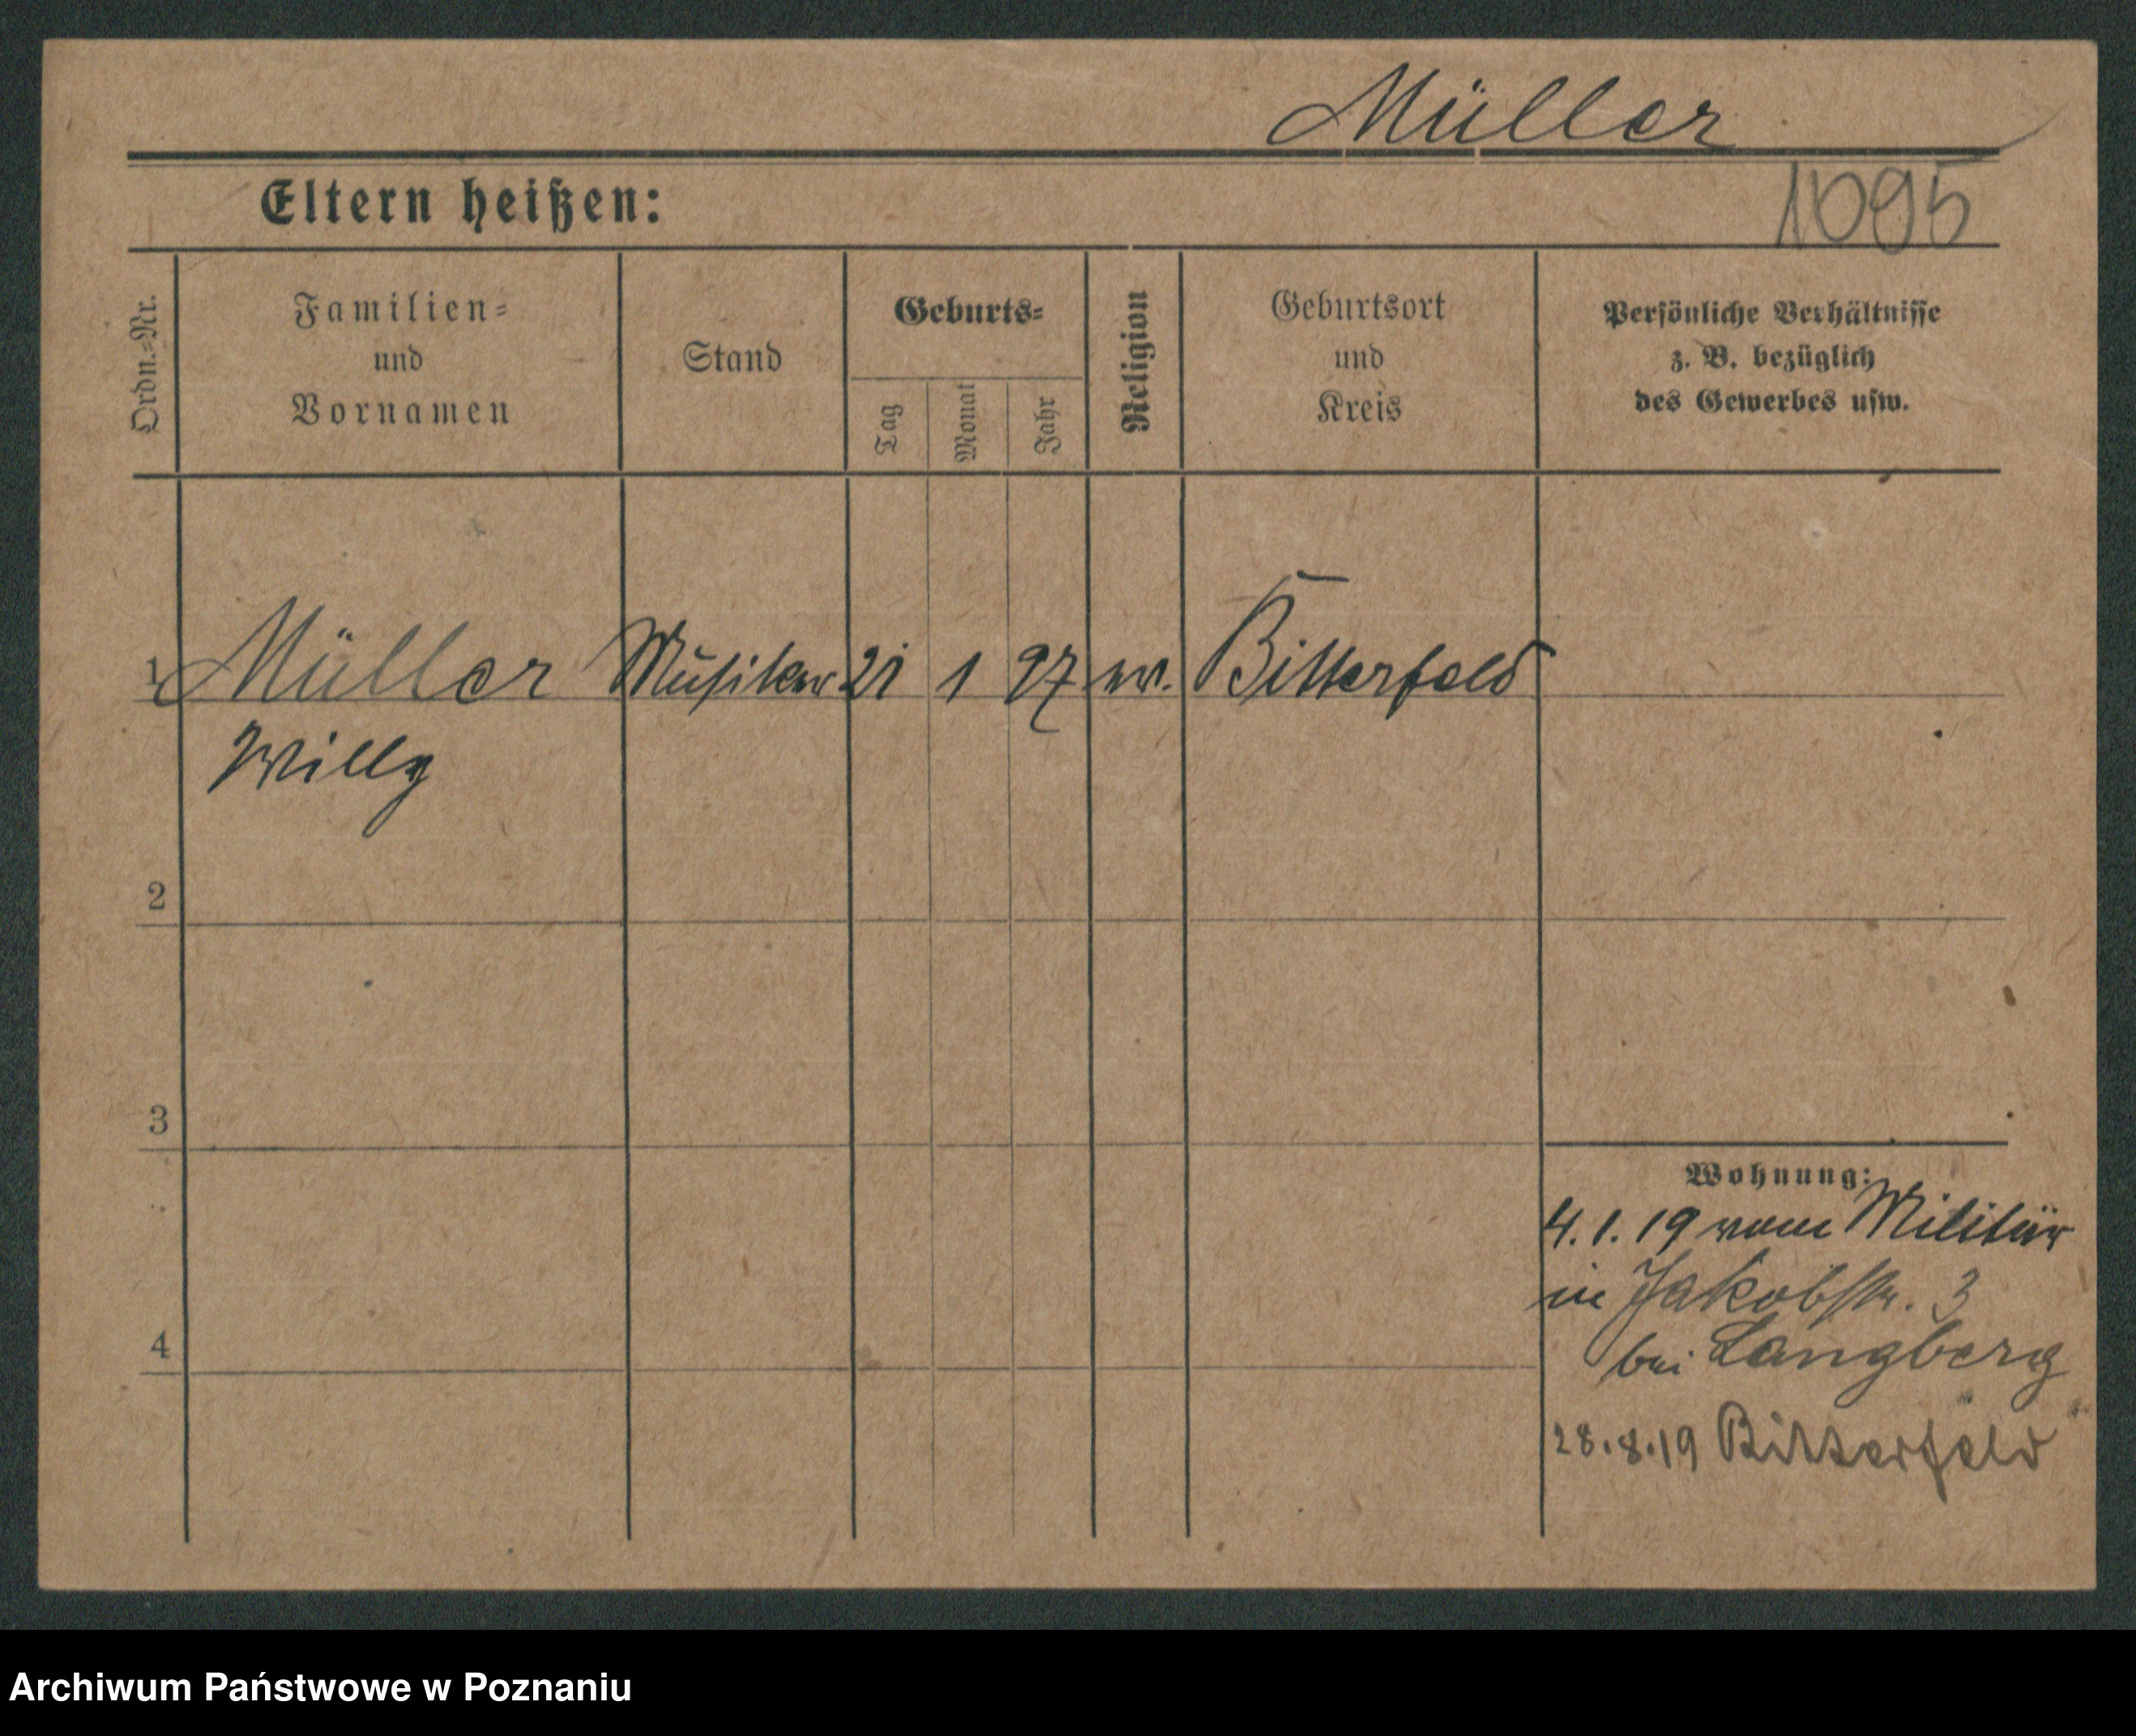 Müller
Eltern heißen:
1095
Ordn.=Nr.
Familien=
und
Vornamen
Stand
Geburts=
Tag
Monat
Jahr
Religion
Geburtsort
und
Kreis
Persönliche Verhältnisse
z. B. bezüglich
des Gewerbes usw.
1 Müller Musiker 21 1 97 ev. Bitterfeld
Willy
2
3
Wohnung:
4.1.19 vom Militär
in Jakobstr. 3
4
bei Langberg
28.8.19 Bitterfeld
Archiwum Państwowe w Poznaniu